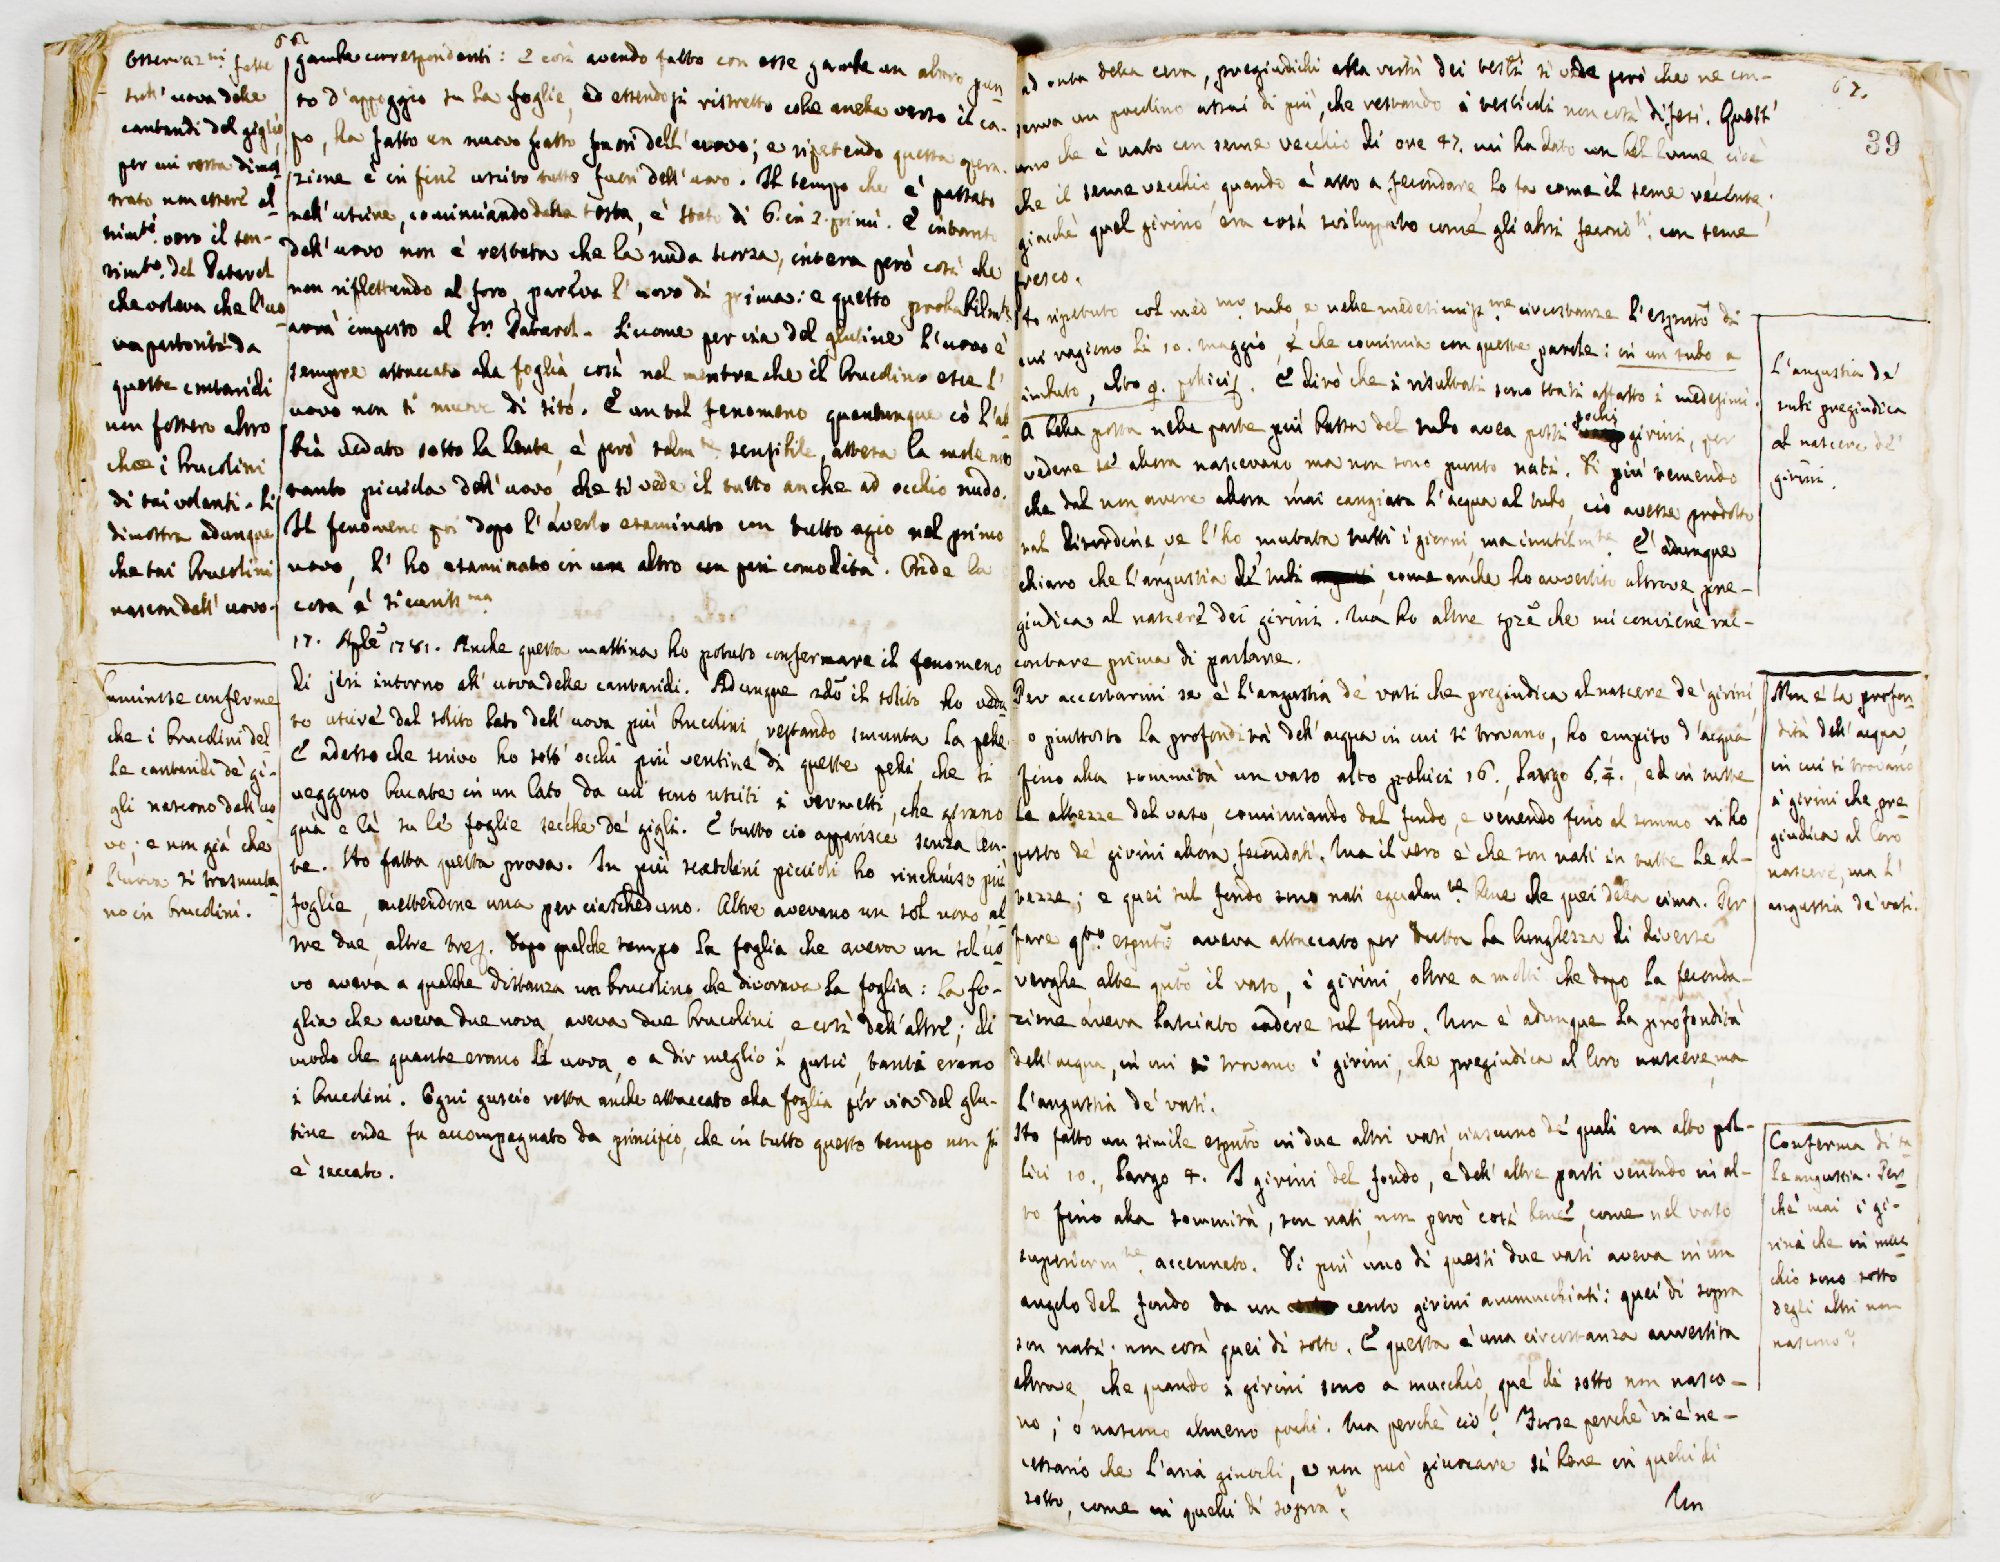 66
Osservaz.ni fatte
sull' uova delle
cantaridi del giglio,
per cui resta dimos
trato non essere al
trimti. vero il sen-
timto. del Vatarel
che voleva che l'uo
va partorite da
queste cantaridi
non fossero altro
che i brucolini
di tai volanti. Si
dimostra adunque
che tai brucolini
nascon dell' uovo.
gambe corrispondenti: e così avendo fatto con esse gambe un altro pun
to d'appoggio su la foglie, ed essendosi ristretto anche verso il ca-
po, ha fatto un nuovo tratto fuori dell' uovo; e ripetendo questa opera-
zione è in fine uscito tutto fuori dell' uovo. Il tempo che è passato
nell' uscire, cominciando dalla testa, è stato di 6. in 7. primi. E intanto
dell' uovo non è restata che la nuda scorza, intera però così che
non riflettendo al foro, pareva l' uovo di prima: e questo probabilmte
avrà imposto al Sr. Vatarel. Siccome per via del glutine l'uovo è
sempre attaccato alla foglia, così nel mentre che il brucolino esce l'
uovo non si muove di sito. E un tal fenomeno quantunque io l'ab
bia veduto sotto la lente, è però talmte. sensibile, attesa la mole non
tanto picciola dell' uovo, che si vede il tutto anche ad occhio nudo.
Il fenomeno poi dopo l' averlo esaminato con tutto agio nel primo
uovo, l' ho esaminato in un altro con pari comodità. Onde la
cosa è sicuriss.ma
17. Aple 1781. Anche questa mattina ho potuto confermare il fenomeno
di jeri intorno all' uova delle cantaridi. Adunque sedo il solito ho vedu
to uscire dal solito lato dell' uova più brucolini, restando smunta la pelle.
E adesso che scrivo ho sott' occhi più ventine di queste pelli, che si
veggono bucate in un lato, da cui sono usciti i vermetti, che girano
quà e là su le foglie secche de' gigli. E tutto ciò apparisce senza len-
te. Ho fatta questa prova. In più scatolini piccioli ho rinchiuso più
foglie, mettendone una per ciascheduno. Altre avevano un sol uovo, al
tre due, altre tre. Dopo qualche tempo la foglia che aveva un sol uo
vo aveva a qualche distanza un brucolino che divorava la foglia: la fo-
glia che aveva due uova, aveva due brucolini, e così dell' altre; di
modo che quante erano le uova, o a dir meglio i gusci, tanti erano
i brucolini. Ogni guscio resta anche attaccato alla foglia per via del glu-
tine onde fu accompagnato da principio, che in tutto questo tempo non si
è seccato.
che i brucolini del
le cantaridi de' gi-
gli nascono dell' uo
vo; e non già che
l'uova si trasmuta
no in brucolini.
67.
39
ad onta della cera, pregiudichi alla virtù dei testi. Si vede però che ne con-
serva un pocolino assai di più, che restando i testicoli non così difesi. Quest'
uno che è nato con seme vecchio di ore 47. mi ha dato un bel lume cioè
che il seme vecchio, quando è atto a fecondare, lo fa come il seme recente;
giacchè quel girino era così sviluppato come gli altri fecondti. con seme
fresco.
Ho ripetuto col medmo. tubo, e nelle medesimissme circostanze l'espmto di
cui ragiono li 10. maggio, e che comincia con queste parole: in un tubo a
imbuto, alto 9. pollici. E dirò che i risultati sono stati affatto i medesimi.
A bella posta nella parte più bassa del tubo avea posti pochi girini, per
vedere se allora nascevano ma non sono punto nati. Di più temendo
che dal non avere allora mai cangiata l'acqua al tubo, ciò avesse prodotto
tal disordine, ve l'ho mutata tutti i giorni, ma inutilmte. E' adunque
chiaro che l'angustia de' tubi, come anche ho avvertito altrove, pre-
giudica al nascere dei girini. Ma ho altre spze che mi conviene rac-
contare prima di parlarne.
Per accertarmi se è l'angustia de' vasi che pregiudica al nascere de' girini,
o piuttosto la profondità dell' acqua in cui si trovano, ho empito d'acqua
fino alla sommità un vaso alto pollici 16., largo 6. 1/2., ed in tutte
le altezze del vaso, cominciando dal fondo, e venendo fino al sommo vi ho
posto de' girini allora fecondati. Ma il vero è che son nati in tutte le al-
tezze; e quei sul fondo sono nati egualmte. bene che quei della cima. Per
fare qto. espmto aveva attaccato per tutta la lunghezza di diverse
verghe, alte qto il vaso, i girini, oltre a molti che dopo la feconda-
zione aveva lasciato cadere sul fondo. Non è adunque la profondità
dell' acqua, in cui si trovano i girini, che pregiudica al loro nascere, ma
l'angustia de' vasi.
Ho fatto un simile espmto in due altri vasi, ciascuno de' quali era alto pol-
lici 10., largo 4. I girini del fondo, e dell' altre parti venendo in al-
to fino alla sommità, son nati, non però così bene, come nel vaso
superiormte. accennato. Di più uno di questi due vasi aveva in un
angolo del fondo da un cento girini ammucchiati: quei di sopra
son nati; non così quei di sotto. E questa è una circostanza avvertita
altrove, che quando i girini sono a mucchio, que' di sotto non nasco-
no; o nascono almeno pochi. Ma perchè ciò? Forse perchè vi è ne-
cessario che l'aria giuochi, e non può giuocare sì bene in quelli di
sotto, come in quelli di sopra?
Un
L'angustia de'
tubi pregiudica
al nascere de'
girini.
Non è la profon
dità dell' acqua,
in cui si trovano
i girini che pre
giudica al loro
nascere, ma l'
angustia de' vasi.
Conferma di ta
le angustia. Per
chè mai i gi-
rini che in muc
chio sono sotto
degli altri non
nascono?